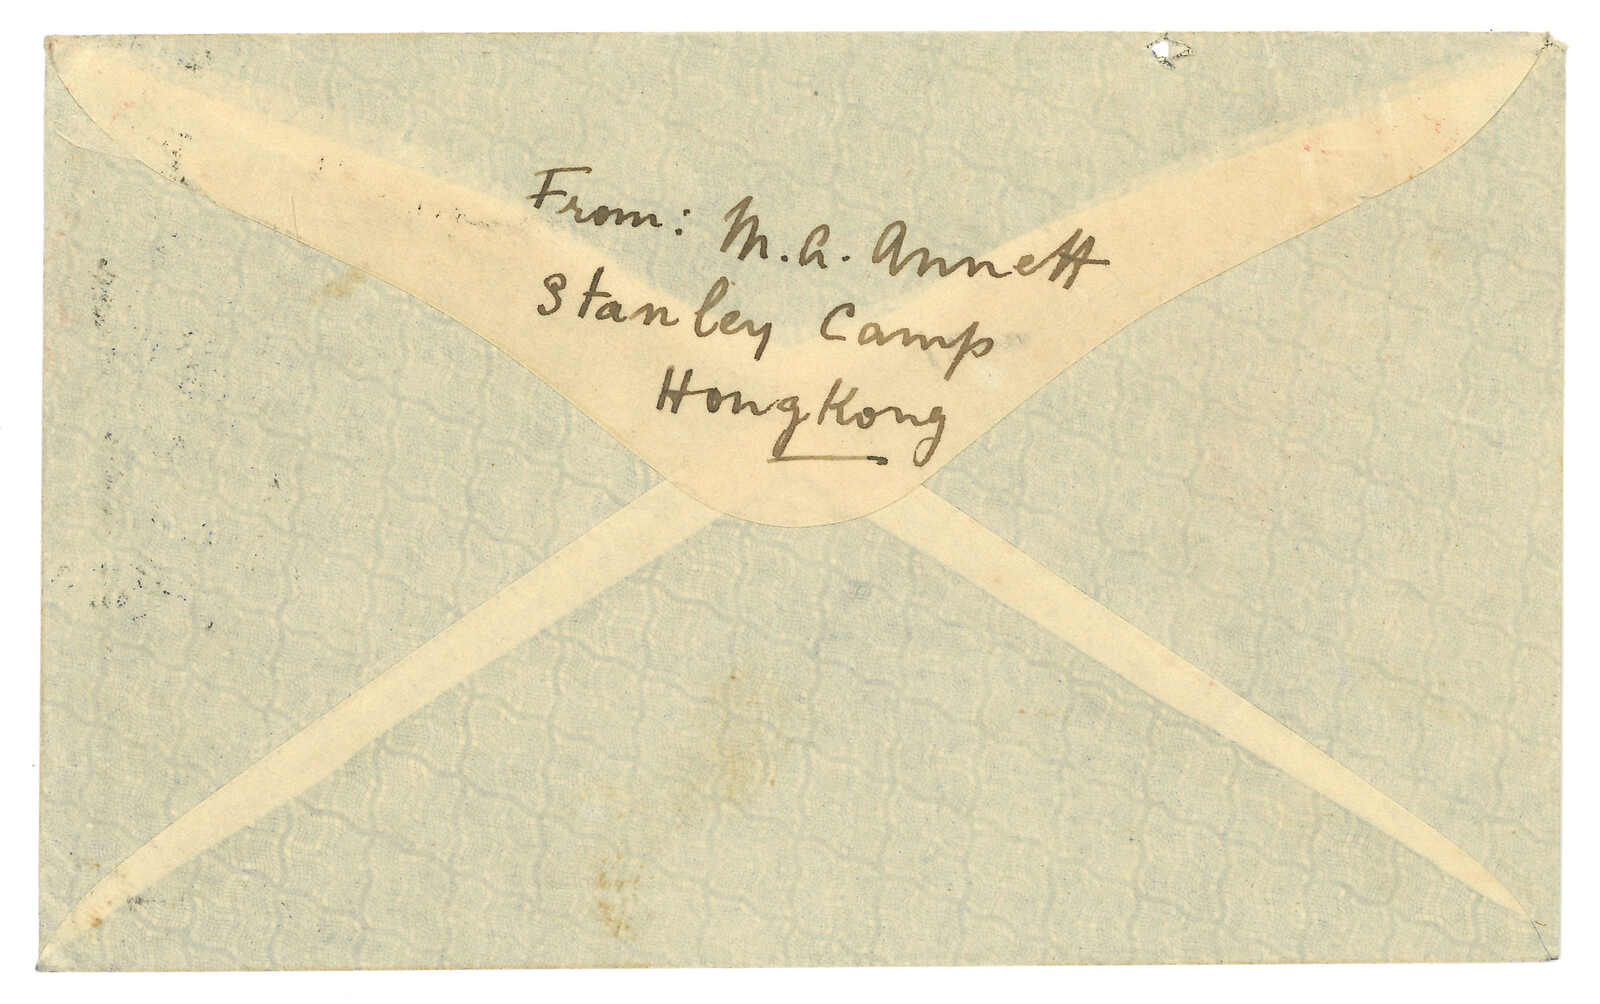 From: M.A. Annett
Stanley Camp
HongKong